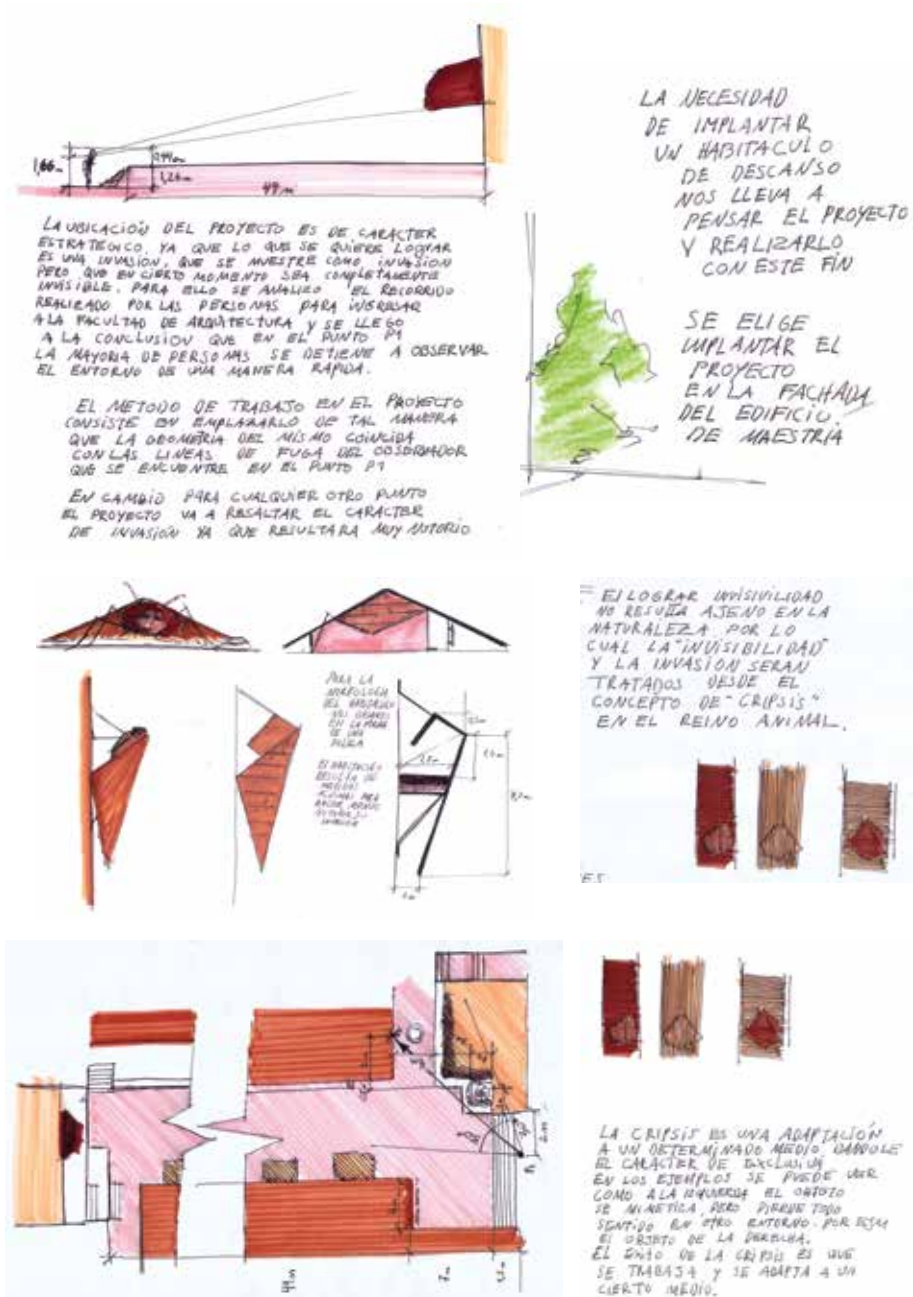 1,66m
0,44m
1,26m
49m
LA UBICACIÓN DEL PROYECTO ES DE CARACTER
ESTRATEGICO, YA QUE LO QUE SE QUIERE LOGRAR
ES UNA INVASION, QUE SE MUESTRE COMO INVASION
PERO QUE EN CIERTO MOMENTO SEA COMPLETAMENTE
INVISIBLE. PARA ELLO SE ANALIZO EL RECORRIDO
REALIZADO POR LAS PERSONAS PARA INGRESAR
A LA FACULTAD DE ARQUITECTURA Y SE LLEGO
A LA CONCLUSION QUE EN EL PUNTO P1
LA MAYORIA DE PERSONAS SE DETIENE A OBSERVAR
EL ENTORNO DE UNA MANERA RAPIDA.
EL METODO DE TRABAJO EN EL PROYECTO
CONSISTE EN EMPLAZARLO DE TAL MANERA
QUE LA GEOMETRIA DEL MISMO COINCIDA
CON LAS LINEAS DE FUGA DEL OBSERVADOR
QUE SE ENCUENTRE EN EL PUNTO P1
EN CAMBIO PARA CUALQUIER OTRO PUNTO
EL PROYECTO VA A RESALTAR EL CARACTER
DE INVASIÓN YA QUE RESULTARA MUY NOTORIO
LA NECESIDAD
DE IMPLANTAR
UN HABITACULO
DE DESCANSO
NOS LLEVA A
PENSAR EL PROYECTO
Y REALIZARLO
CON ESTE FIN
SE ELIGE
IMPLANTAR EL
PROYECTO
EN LA FACHADA
DEL EDIFICIO
DE MAESTRIA
PARA LA
MORFOLOGIA
DEL HABITACULO
NOS
EN LA FORMA
DE UNA
EL HABITACULO
RESULTA DE
MEDIDAS
MINIMAS PARA
HACER MENOS
NOTORIA SU
INVASION
EL LOGRAR INVISIVILIDAD
NO RESULTA AJENO EN LA
NATURALEZA POR LO
CUAL LA "INVISIBILIDAD"
Y LA INVASION SERAN
TRATADOS DESDE EL
CONCEPTO DE "CRIPSIS"
EN EL REINO ANIMAL.
ES
49m
7m
2m
P1
LA CRIPSIS ES UNA ADAPTACIÓN
A UN DETERMINADO MEDIO DANDOLE
EL CARACTER DE EXCLUSIVA
EN LOS EJEMPLOS SE PUEDE VER
COMO A LA IZQUIERDA EL OBJETO
SE MIMETICA, PERO PIERDE TODO
SENTIDO EN OTRO ENTORNO. POR
EL OBJETO DE LA DERECHA.
EL EXITO DE LA CRIPSIS ES QUE
SE TRABAJA Y SE ADAPTA A UN
CIERTO MEDIO.